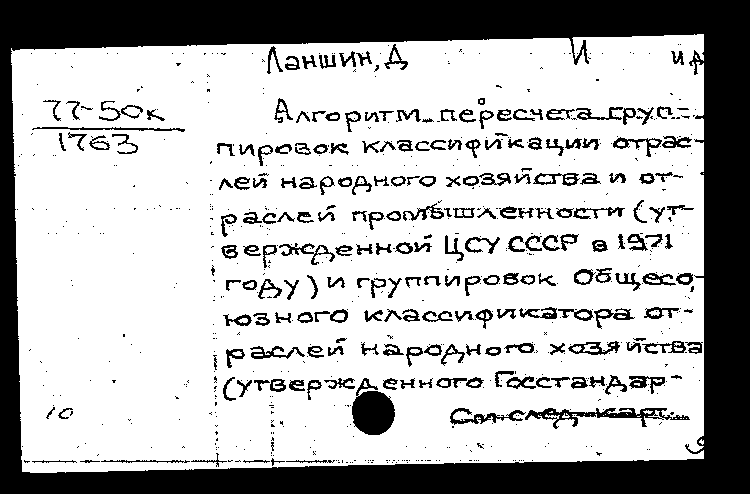 Ланшин, Д И и др
77-50к
1763
Алгоритм пересчета груп-
пировок классификации отрас-
лей народного хозяйства и от-
раслей промышленности (ут-
вержденной ЦСУ СССР в 1971
году) и группировок Общесо-
юзного классификатора от-
раслей народного хозяйства
(утвержденного Госстандар-
10
См. след. карт.